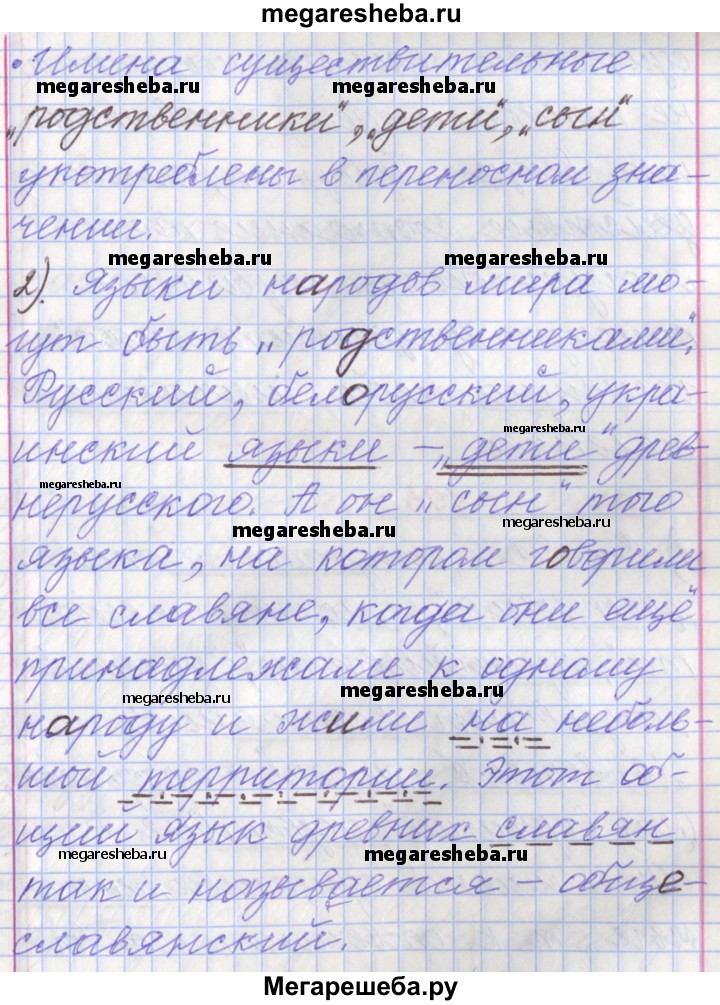 megaresheba.ru
• Имена существительные
megaresheba.ru megaresheba.ru
„родственники“, „дети“, „сын“
употреблены в переносном зна-
чении.
megaresheba.ru megaresheba.ru
2). Языки народов мира мо-
гут быть „родственниками“.
Русский, белорусский, укра-
megaresheba.ru
инский языки – „дети“ древ-
megaresheba.ru
нерусского. А он „сын“ того
megaresheba.ru megaresheba.ru
языка, на котором говорили
все славяне, когда они ещё
принадлежали к одному
megaresheba.ru megaresheba.ru
народу и жили на неболь-
шой территории. Этот об-
щий язык древних славян
megaresheba.ru megaresheba.ru
так и называется – обще-
славянский.
Мегарешеба.ру